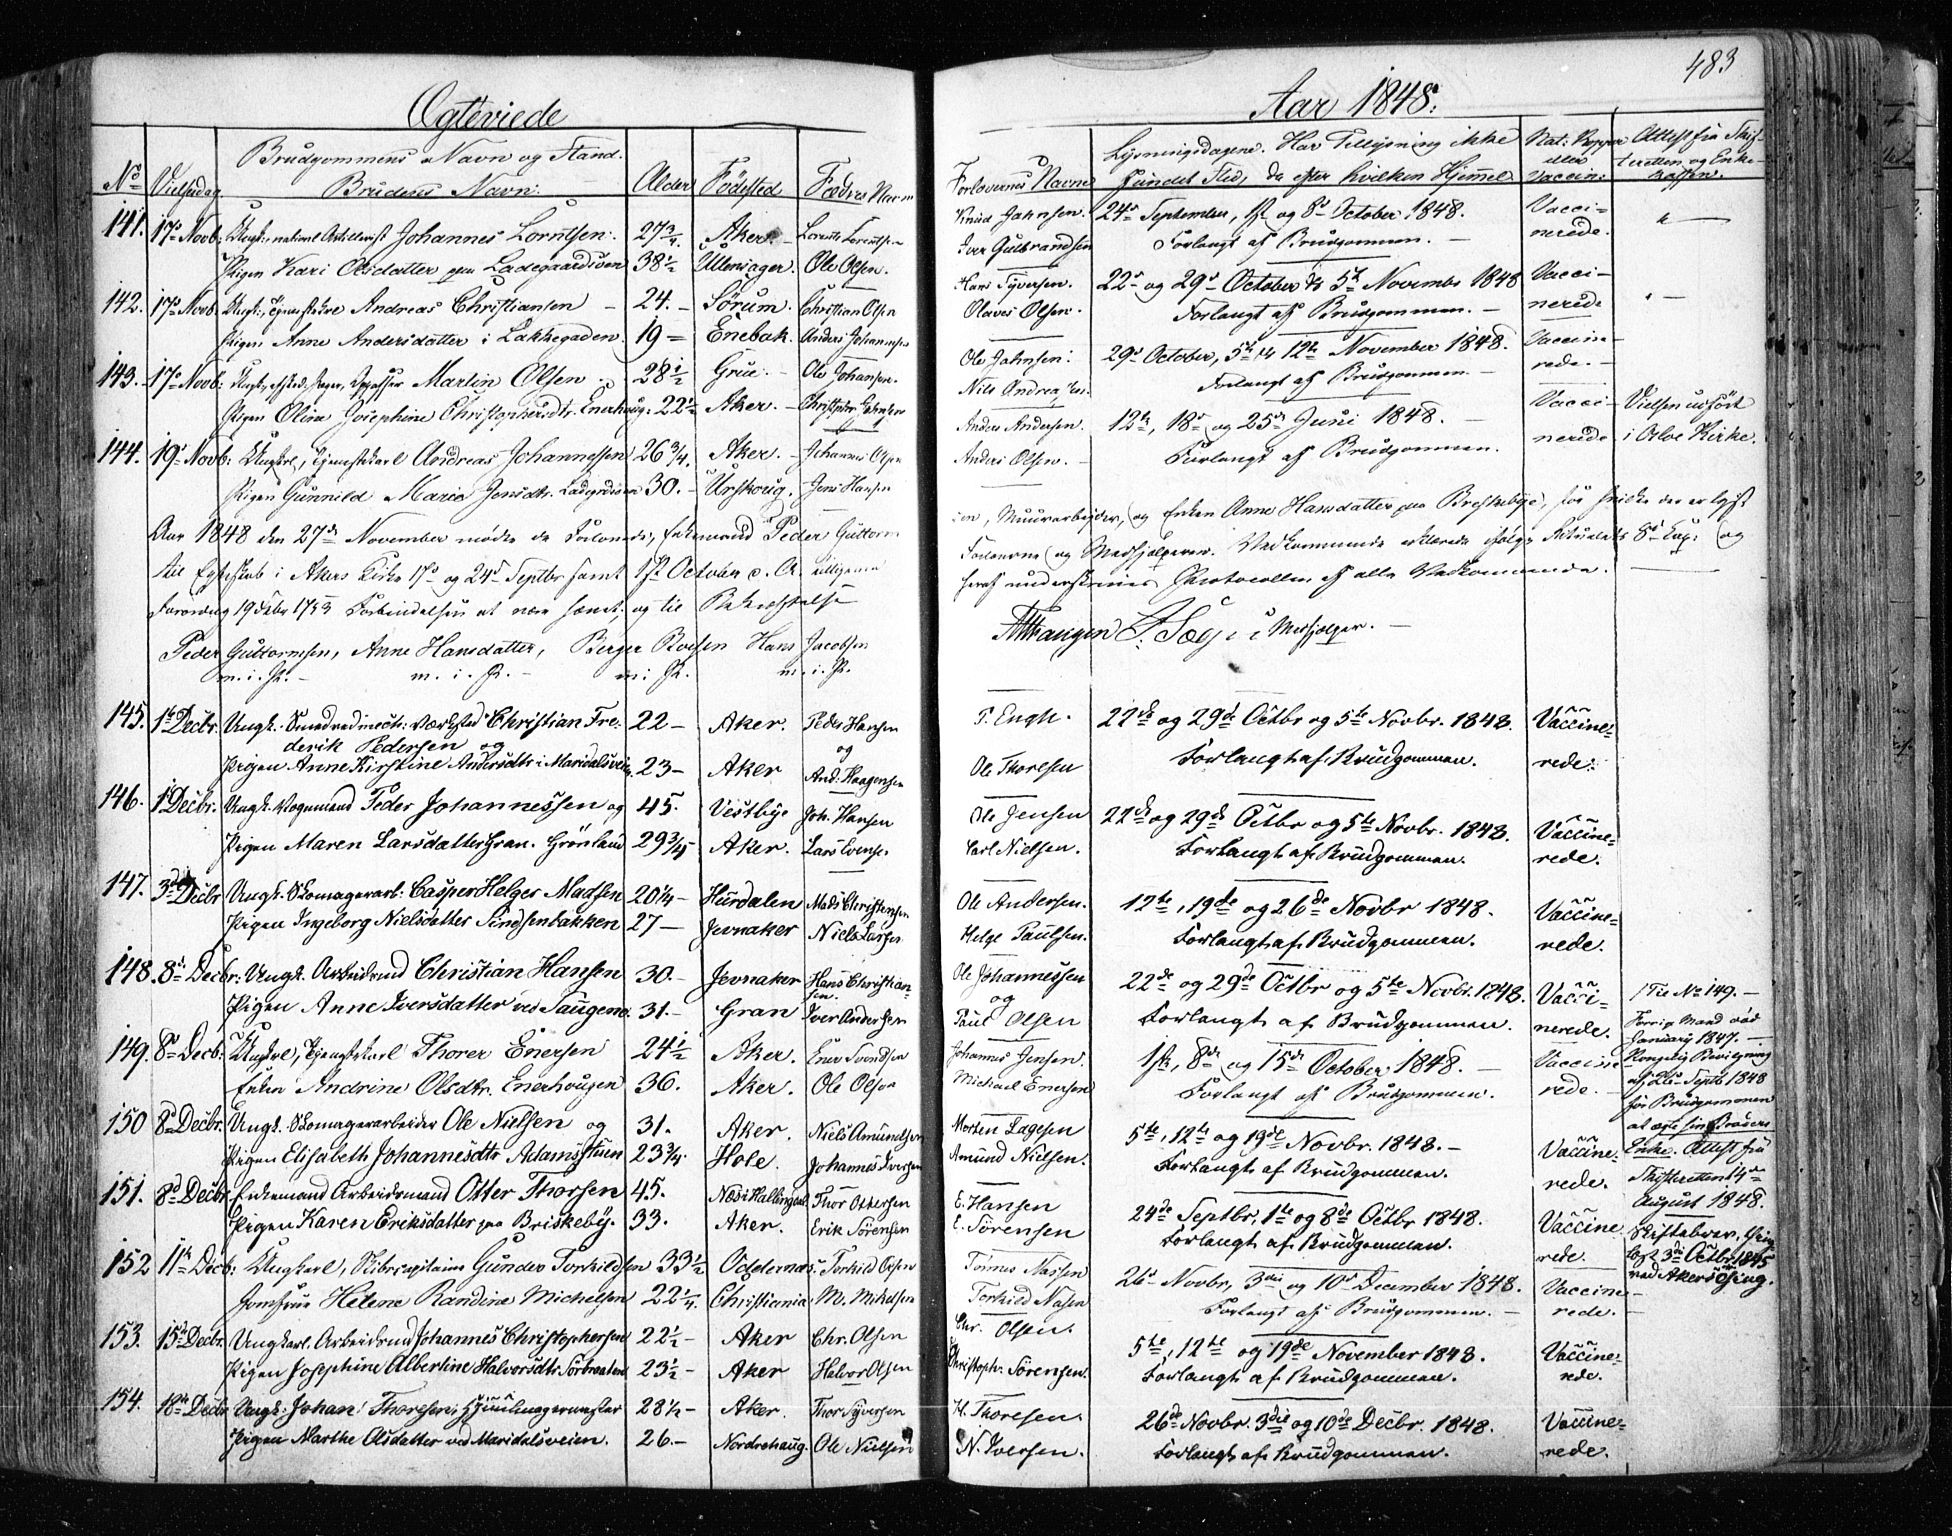 483
Ægteviede
Aar 1848.
No Vielsesdag Brudgommens Navn og Stand. Brudens Navn. Alder Födested Fædres Navn
Forlovernes Navne Lysningsdagene. Har Tillysning ikke fundet Sted, da efter hvilken Hjemmel Nat: Kopper eller Vaccin: Attest fra Skifteretten og Enkekassen.
141. 17de Novb: Ungk., national Artillerist Johannes Lorntsen. 27 3/4 Aker. Lorents Lorentsen
Pigen Kari Olsdatter paa Ladegaardsöen 38 1/2 Ullensager. Ole Olsen.
Knud Jahnsen. 24de September, 1ste og 8de October 1848. Vacci-
Iver Gulbrandsen Forlangt af Brudgommen. nerede.
142. 17de Novb. Ungk., Tjenestekarl Andreas Christiansen 24. Sørum. Christian Olsen
Pigen Anne Andersdatter i Lakkegaden. 19 Enebak. Anders Johannesen
Hans Syversen. 22de og 29de October & 5te Novembr 1848 Vacci-
Olaves Olsen. Forlangt af Brudgommen. nerede
143. 17de Novb: Martin Olsen 28 1/2 Grue. Ole Johansen.
Pigen Oline Josephine Christophersdtr. Enerhaug: 22 1/2 Aker. Christopher
Ole Jahnsen: 29de October, 5te & 12te November 1848. Vaccine-
Nils Andreasen. Forlangt af Brudgommen rede.
144. 19de Novb: Ungkarl, Tjenestekarl Andreas Johannessen 26 3/4. Aker. Johannes Olsen
Pigen Gunnild Marie Jensdtr. Ladegrdsöen 30. Urskoug. Jens Hansen
Anders Andersen. 12te, 18de og 25de Juni 1848. Vacci- Vielsen udført
Anders Olsen. Forlangt af Brudgommen. nerede i Oslo Kirke.
Aar 1848 den 27de November mødte de Forlovede, Enkemand Peder Guttorm
sen, Muurarbejder, og Enken Anne Hansdatter paa Briskebye, for hvilke der er lyst
til Egteskab i Akers Kirke 17de og 24de Septbr samt 1ste October d. A. tilligemed
Forloverne og Medhjælperen. Vedkommende erklærede ifølge Ritualets 8de Cap: og
Forordng 19 Febr 1783 Forbindelsen at være hævet, og til Bekræftelse
heraf underskrives Protocollen af alle Vedkommende.
Peder Guttormsen, Anne Hansdatter, Berger Roesen Hans Jacobsen
m. i. P. m. i. P. m. i. P. m. i. P.
Medhjælper.
145. 1ste Decbr. Ungk. Christian Fre-
derik Pedersen og 22 Aker. Peder Hansen
og
Pigen Anne Kirstine Andersdtr i Maridalsveien 23 Aker And: Haagensen
P. Engh. 22de og 29de Octbr og 5te Novbr. 1848. Vaccine-
Ole Thoresen Forlangt af Brudgommen. rede.
146. 1ste Decbr. Ungk. Vognmand Peder Johannessen og 45. Vestbye Joh. Hansen
Pigen Maren Larsdatter Gran. Grønland 29 3/4 Aker. Lars Evensen
Ole Jensen 22de og 29de Octbr og 5te Novbr. 1848. Vaccine-
Carl Nielsen. Forlangt af Brudgommen. rede.
147. 3de Decbr Ungk. Skomagerarb: Casper Helger Madsen 20 1/4 Hurdalen Mads Christensen
Pigen Ingeborg Nielsdatter Sindsenbakken 27 Jevnaker Niels Larsen
Ole Andersen. 12te, 19de og 26de Novbr 1848. Vaccine-
Helge Paulsen. Forlangt af Brudgommen. rede.
148. 8de Decbr: Ungk. Arbeidsmd Christian Hansen 30. Jevnaker Hans Christian-
sen.
Pigen Anne Iversdatter ved Saugene 31. Gran Iver Andersen
Ole Johannessen 22de og 29de Octbr og 5te Novbr. 1848. Vacci-
og
Paul Olsen Forlangt af Brudgommen. nerede.
149. 8de Decb: Ungkrl, Tjenestekarl Thorer Enersen 24 1/2 Aker. Ener Svendsen
Enken Andrine Olsdtr. Enerhougen 36. Aker. Ole Olsen
Johannes Jensen. 1ste, 8de og 15de October 1848. Vaccine-
Michael Enersen Forlangt af Brudgommen. rede.
Til No 149.
Forrige Mand død
January 1847.
Kongelig Bevilgning
af 22de Septb 1848
for Brudgommen
at ægte sin Broders
Enke. Attest fra
Skifteretten 14de
August 1848.
150 8de Decbr. Ungk. Skomagerarbeider Ole Nielsen og 31. Aker. Niels Amundsen
Pigen Elisabeth Johannesdtr Adamsstuen 23 3/4. Hole. Johannes Iversen
Morten Lagesen 5te, 12te og 19de Novbr. 1848. Vaccine-
Amund Nielsen. Forlangt af Brudgommen. rede.
151. 8de Decbr Enkemand Arbeidsmand Otter Thorsen 45. Næs i Hallingdal Thor Ottersen
Pigen Karen Eriksdatter paa Briskeby. 33. Aker. Erik Sörensen
E. Hansen 24de Septbr, 1ste og 8de Octbr 1848. Vaccine
E. Sörensen Forlangt af Brudgommen. rede.
Skiftebrev
3de Octbr 1845
ved Akers
152 11te Decb: Ungkarl, Skibscapitaine Gunder Torkildsen 33 1/2 Oddernes. Torkild Olsen
Jomfrue Helene Randine Michelsen 22 1/4. Christiania M. Mikelsen
Tönnes Nassen 26de Novbr, 3die og 10de December 1848. Vaccine-
Torkild Nasen Forlangt af Brudgommen. rede.
153. 15de Decbr. Ungkarl. Arbeidsmd Johannes Christophersen 22 1/2 Aker Chr. Olsen
Pigen Josephine Albertine Halvorsdtr. Sörbraaten 23 1/2 Aker Halvor Olsen
Chr. Olsen. 5te, 12te og 19de November 1848. Vaccine-
Christoph. Sörensen. Forlangt af Brudgommen. rede.
154. 18de Decbr Ungk: Johan Thoresen, Hjuulmagermester 28 1/2 Aker. Thor Syversen
Pigen Marthe Olsdatter ved Maridalsveien. 26. Nordrehaug. Ole Nielsen
H. Thoresen. 26de Novbr. 3die og 10de Decbr. 1848. Vaccine-
N. Iversen. Forlangt af Brudgommen. rede.